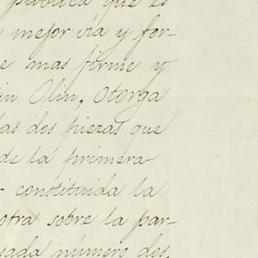 publica que es
mejor via y for-
e mas firme y
in Olin, Otorga
las dos piezas que
de la primera
constituida la
otra sobre la par-
sada número dos,